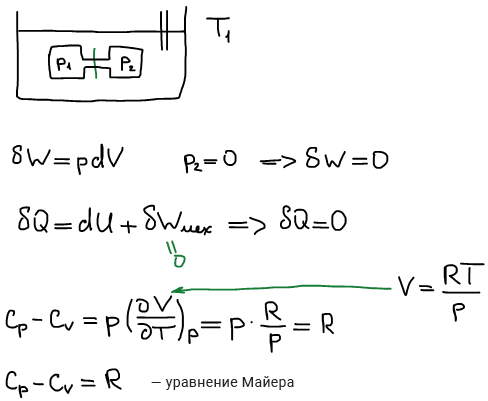 T₁
P₁ P₂
δW = pdV P₂ = 0 => δW = 0
δQ = dU + δWмех => δQ = 0
= 0
V = RT/P
Cp − Cv = P(∂V/∂T)p = P · R/P = R
Cp − Cv = R — уравнение Майера